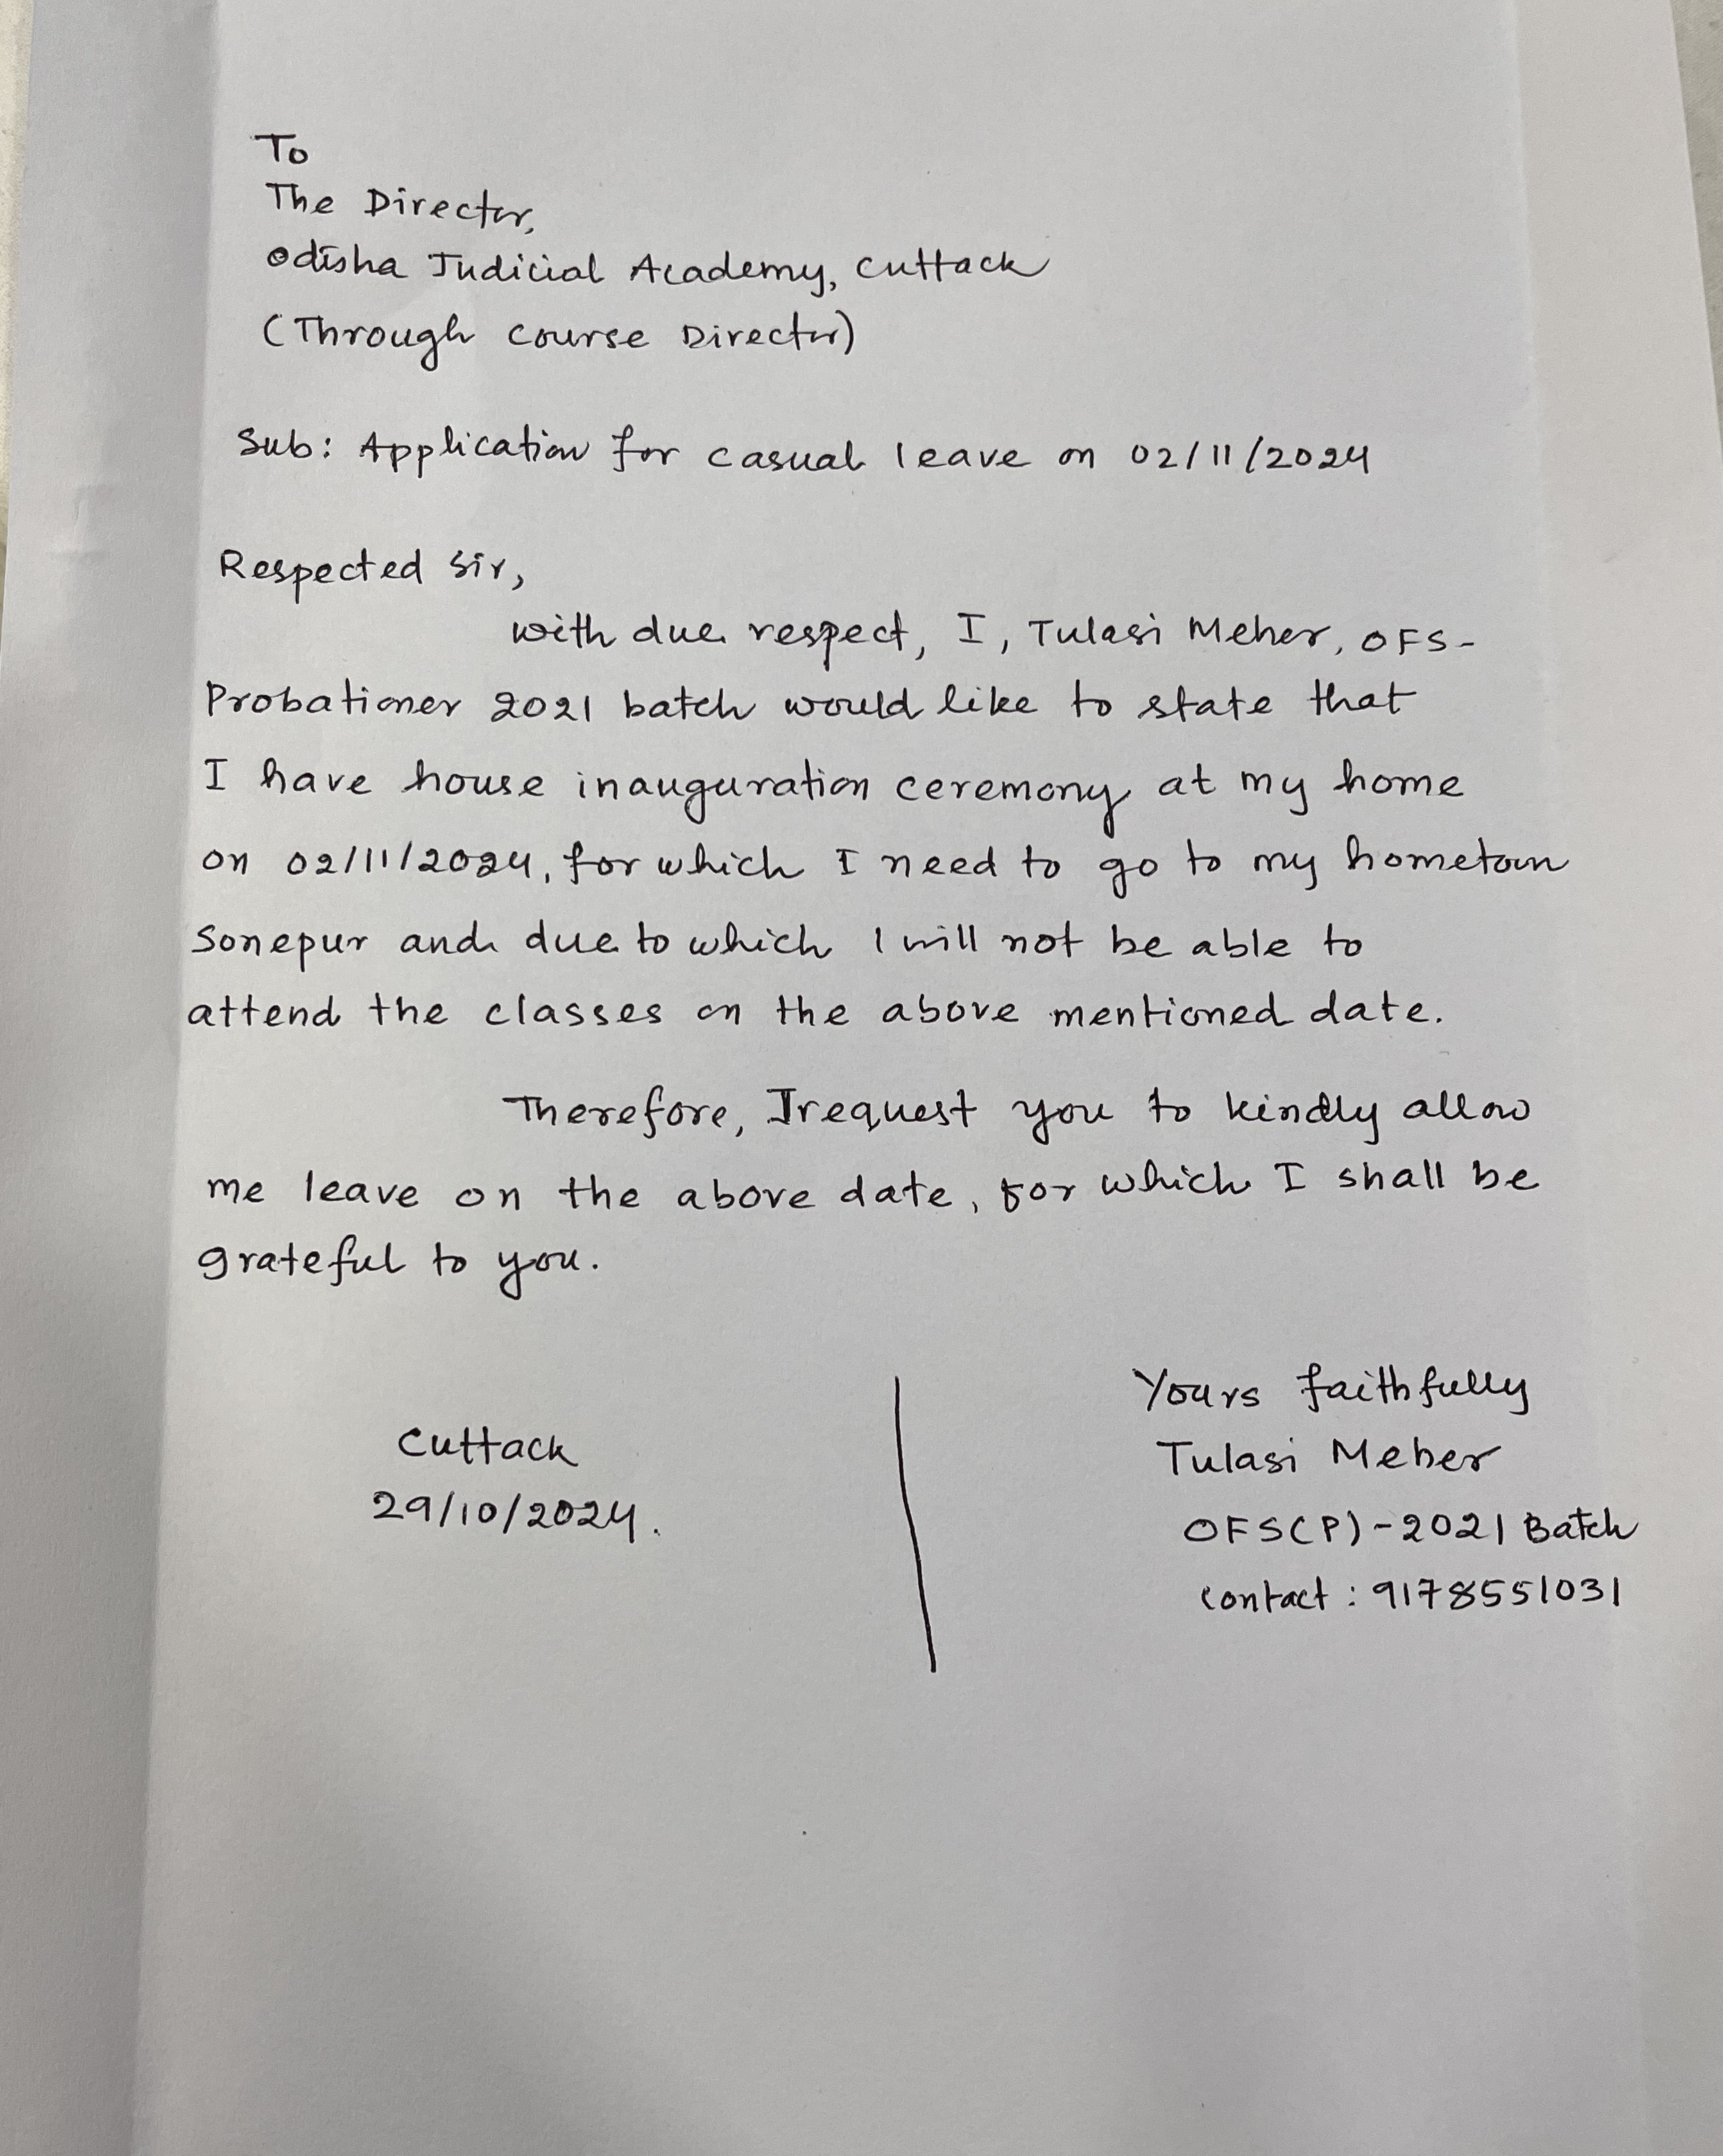 To
The Director,
Odisha Judicial Academy, Cuttack
(Through Course Director)
Sub: Application for casual leave on 02/11/2024
Respected Sir,
with due respect, I, Tulasi Meher, OFS-
Probationer 2021 batch would like to state that
I have house inauguration ceremony at my home
on 02/11/2024, for which I need to go to my hometown
Sonepur and due to which I will not be able to
attend the classes on the above mentioned date.
Therefore, I request you to kindly allow
me leave on the above date, for which I shall be
grateful to you.
Cuttack
29/10/2024.
Yours faithfully
Tulasi Meher
OFS(P)-2021 Batch
Contact : 9178551031